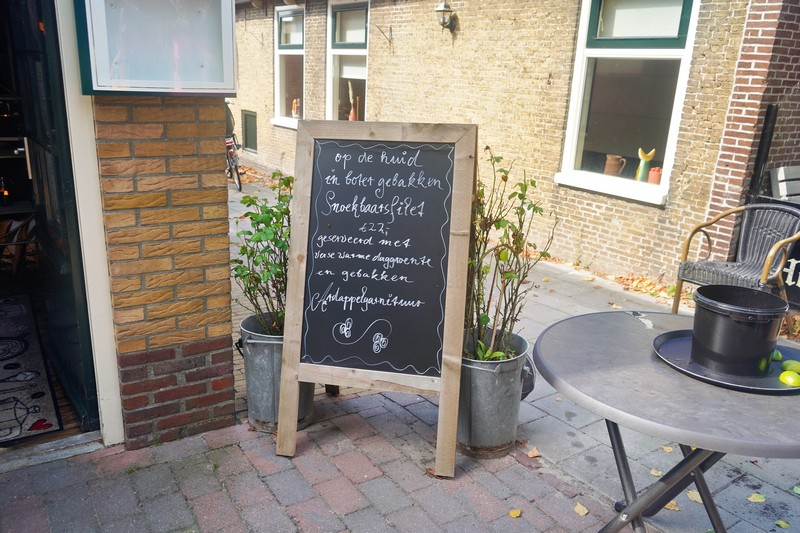 op de huid
in boter gebakken
Snoekbaarsfilet
€22,-
geserveerd met
verse warme daggroente
en gebakken
Aardappelgarnituur